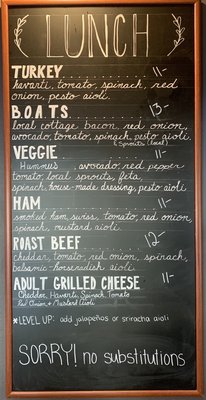 LUNCH
TURKEY 11-
havarti, tomato, spinach, red
onion, pesto aioli.
B.O.A.T.S. 13-
local cottage bacon, red onion,
avocado, tomato, spinach, pesto aioli.
& Sprouts (local)
VEGGIE 11-
Hummus, avocado, red pepper
tomato, local sprouts, feta,
spinach, house-made dressing, pesto aioli.
HAM 11-
smoked ham, swiss, tomato, red onion,
spinach, mustard aioli.
ROAST BEEF 12-
cheddar, tomato, red onion, spinach,
balsamic-horseradish aioli.
ADULT GRILLED CHEESE 11-
Cheddar, Havarti, Spinach, Tomato
Red Onion & Mustard Aioli
*LEVEL UP: add jalapeños or sriracha aioli
SORRY! no substitutions